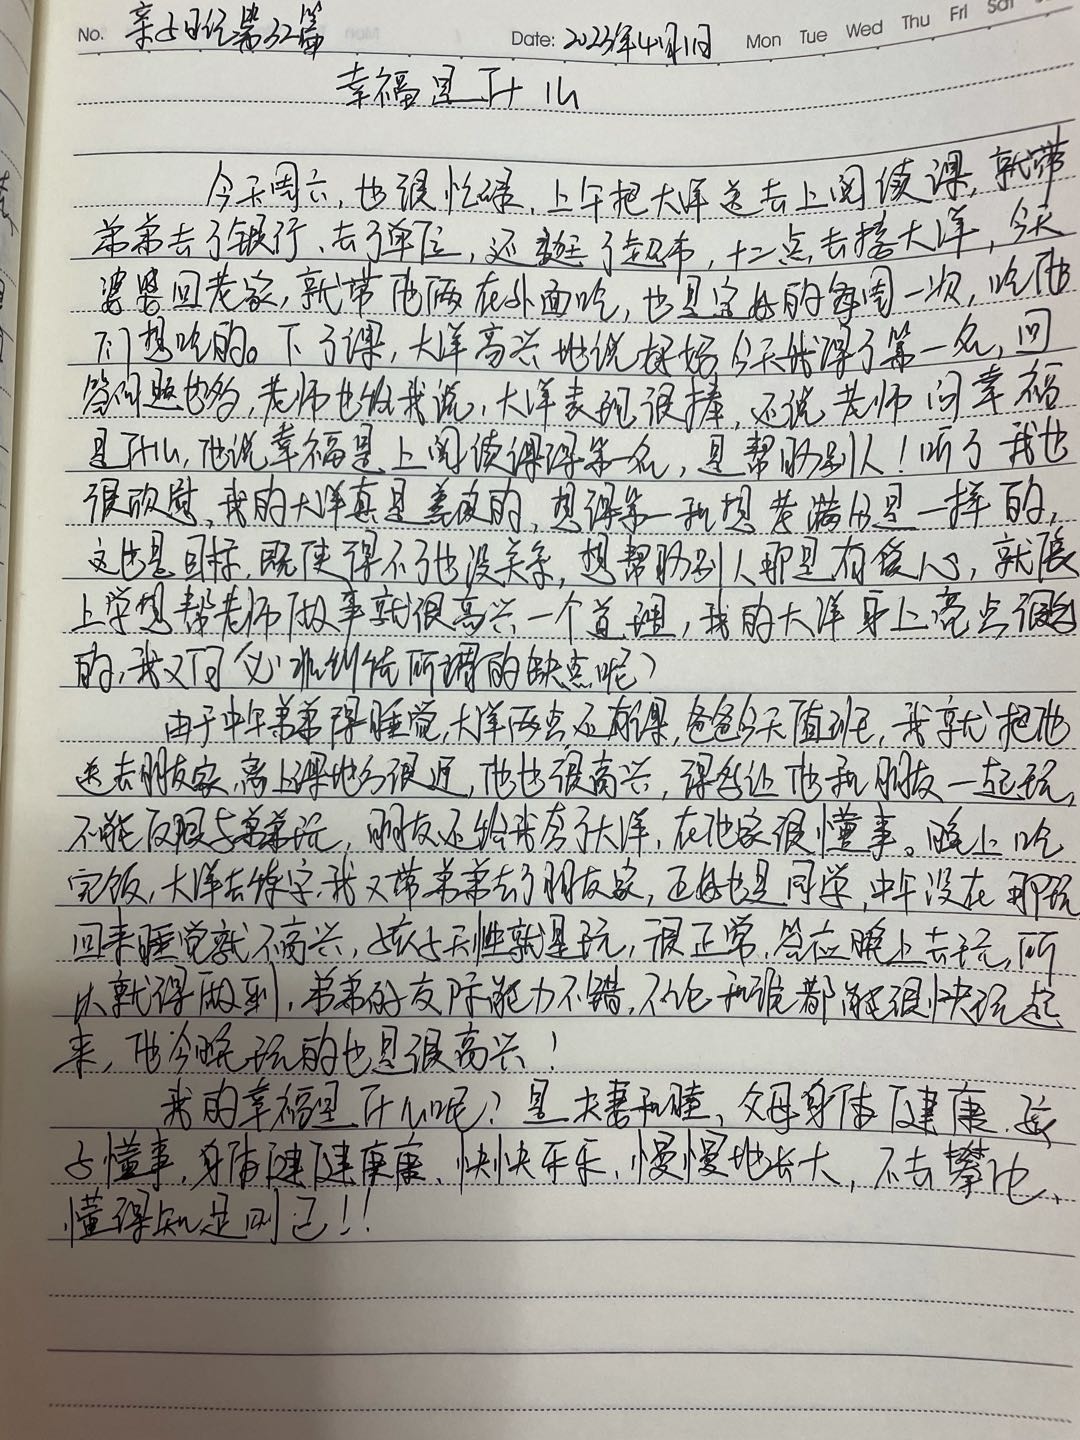 No. 亲子日记第32篇 Date: 2023年4月1日 Mon Tue Wed Thu Fri Sat
幸福是什么
今天周六，也很忙碌，上午把大洋送去上阅读课，就带
弟弟去了银行、去了单位，还逛了超市，十二点去接大洋，今天
婆婆回老家，就带他俩在外面吃，也是定好的每周一次，吃他
们想吃的。下了课，大洋高兴地说妈妈今天我得了第一名，回
答问题也多，老师也给我说，大洋表现很棒，还说老师问幸福
是什么，他说幸福是上阅读课得第一名，是帮助别人！听了我也
很欣慰，我的大洋真是善良的，想得第一和想考满分是一样的，
这也是目标，既使得不了也没关系，想帮助别人那是有爱心，就像
上学想帮老师做事就很高兴一个道理，我的大洋身上亮点很多
的，我又何必非纠结所谓的缺点呢？
由于中午弟弟得睡觉，大洋两点还有课，爸爸今天值班，我就把他
送去朋友家，离上课地方很近，他也很高兴，课前让他和朋友一起玩，
不能仅限与弟弟玩，朋友还给我夸了大洋，在他家很懂事。晚上吃
完饭，大洋去练字，我又带弟弟去了朋友家，正好也是同学，中午没在那玩
回来睡觉就不高兴，孩子天性就是玩，很正常，答应晚上去玩，所
以就得做到，弟弟的交际能力不错，不论和谁都能很快玩起
来，他今晚玩的也是很高兴！
我的幸福是什么呢？是夫妻和睦，父母身体健康，孩
子懂事，身体健健康康、快快乐乐，慢慢地长大，不去攀比、
懂得知足则已！！